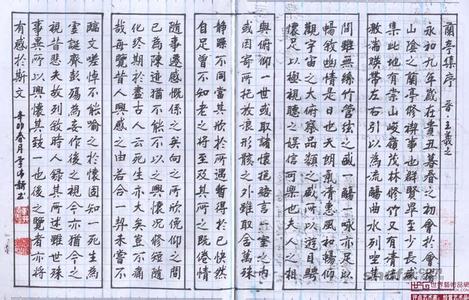 蘭亭集序 晉 王羲之
永和九年歲在癸丑暮春之初會於會稽
山陰之蘭亭修稧事也群賢畢至少長咸
集此地有崇山峻嶺茂林修竹又有清流
激湍暎帶左右引以為流觴曲水列坐其
間雖無絲竹管弦之盛一觴一詠亦足以
暢敘幽情是日也天朗氣清惠風和暢仰
觀宇宙之大俯察品類之盛所以遊目騁
懷足以極視聽之娛信可樂也夫人之相
與俯仰一世或取諸懷抱晤言一室之內
或因寄所托放浪形骸之外雖取舍萬殊
靜躁不同當其欣於所遇暫得於己快然
自足曾不知老之將至及其所之既倦情
隨事遷感慨係之矣向之所欣俛仰之間
已為陳迹猶不能不以之興懷況修短隨
化終期於盡古人云死生亦大矣豈不痛
哉每覽昔人興感之由若合一契未嘗不
臨文嗟悼不能喻之於懷固知一死生為
虛誕齊彭殤為妄作後之視今亦猶今之
視昔悲夫故列敘時人錄其所述雖世殊
事異所以興懷其致一也後之覽者亦將
有感於斯文 辛卯春月李